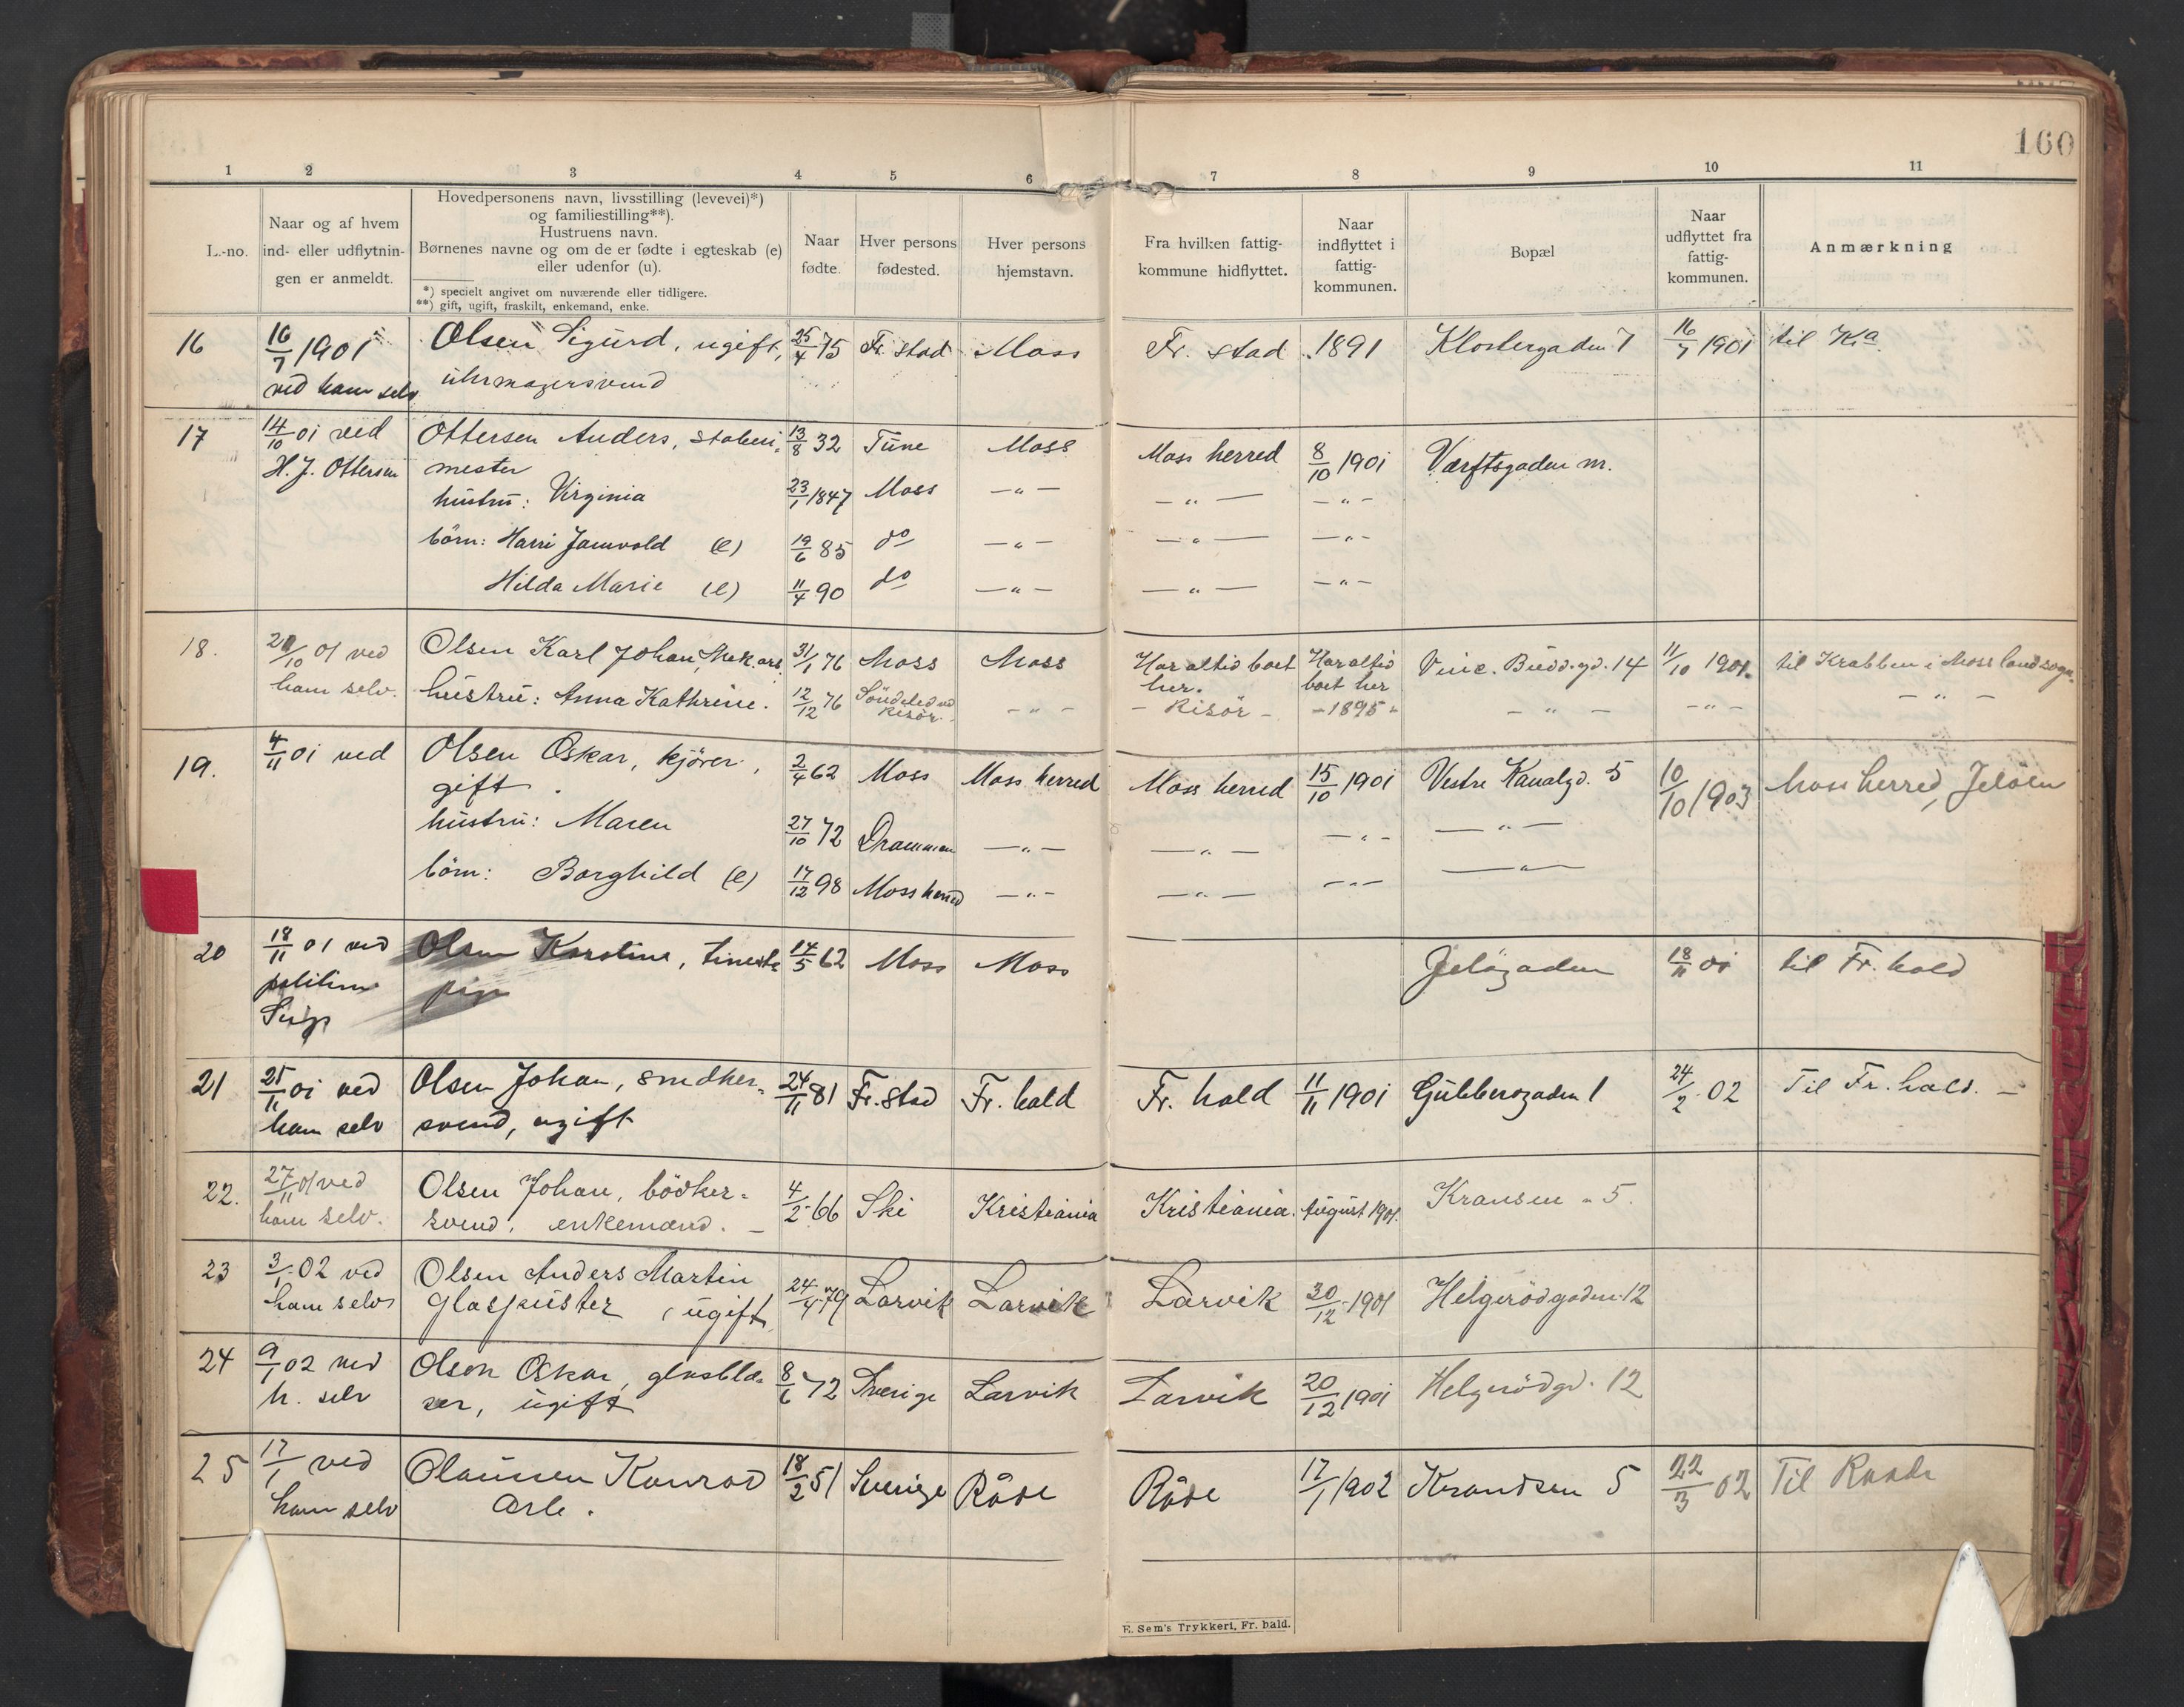 160
1 2 3 4 5 6 7 8 9 10 11
L.-no.
Naar og af hvem
ind- eller udflytnin-
gen er anmeldt.
Hovedpersonens navn, livsstilling (levevei)*)
og familiestilling**).
Hustruens navn.
Børnenes navne og om de er fødte i egteskab (e)
eller udenfor (u).
*) specielt angivet om nuværende eller tidligere.
**) gift, ugift, fraskilt, enkemand, enke.
Naar
fødte.
Hver persons
fødested.
Hver persons
hjemstavn.
Fra hvilken fattig-
kommune hidflyttet.
Naar
indflyttet i
fattig-
kommunen.
Bopæl
Naar
udflyttet fra
fattig-
kommunen.
Anmærkning
16 16/7 1901 Olsen Sigurd, ugift, 25/4 75 Fr. stad Moss Fr. stad 1891 Klostergaden 7 16/7 1901 til Kra
ved ham selv uhrmagersvend
17 14/10 01 ved Ottersen Anders, stalleri- 13/8 32 Tune Moss Moss herred 8/10 1901 Værftsgaden m.
H. J. Ottersen mester
hustru: Virginia 23/1 1847 Moss —"— —"— —"—
børn: Harri Jamvold (e) 19/6 85 do —"— —"— —"—
Hilda Marie (e) 11/4 90 do —"— —"— —"—
18. /10 01 ved Olsen Karl Johan, 31/1 76 Moss Moss Har altid boet Har altid Vinc. Budd.gd. 14 11/10 1901. til Krabben i Moss landsogn.
ham selv. her. boet her
hustru: Anna Kathrine. 12/12 76 Söndeled ved —"— – Risör – –1895– —"— —"— —"—
Risör.
19. 4/11 01 ved Olsen Oskar, kjörer, 2/4 62 Moss Moss herred Moss herred 15/10 1901 Vestre Kanalgd. 5 10/10 1903 Moss herred, Jelöen
gift.
hustru: Maren 27/10 72 Drammen —"— —"— —"— —"—
börn: Borghild (e) 17/12 98 Moss herred —"— —"— —"— —"—
20 18/11 01 ved Olsen Karoline, tjeneste 14/5 62 Moss Moss — Jelögaden 18/11 01 til Fr. hald
politiine pige
21 25/11 01 ved Olsen Johan, snedker- 24/11 81 Fr. stad Fr. hald Fr. hald 11/11 1901 Gubberogaden 1 24/2 02 Til Fr. hald. –
ham selv svend, ugift
22. 27/11 01 ved Olsen Johan, bödker- 4/2 66 Ski Kristiania Kristiania. August 1901. Kransen - 5.
ham selv. svend, enkemand. –
23 3/1 02 ved Olsen Anders Martin 24/4 79 Larvik Larvik Larvik 30/12 1901 Helgerödgaden 12
ham selv glaspuster, ugift
24 9/1 02 ved Olson Oskar, glasblæ- 8/6 72 Sverige Larvik Larvik 20/12 1901 Helgerödgd. 12
h. selv ser, ugift
25 17/1 ved Olaussen Konrad 18/2 51 Sverige Råde Råde 17/1 1902 Krandsen 5 22/3 02 Til Raade
ham selv Arb.
E. Sem's Trykkeri, Fr. hald.